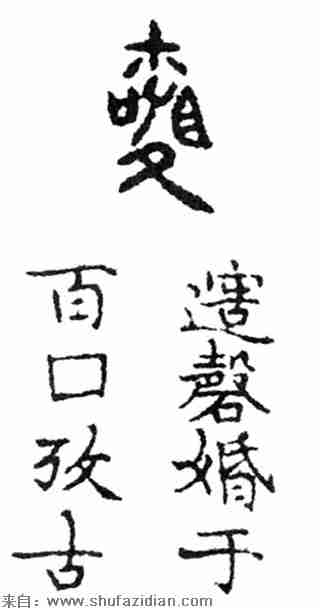 磬婚于
百口攷古
来自：www.shufazidian.com